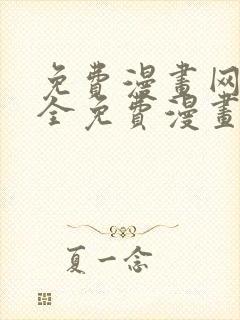 免費漫畫网
全免費漫畫
夏一念